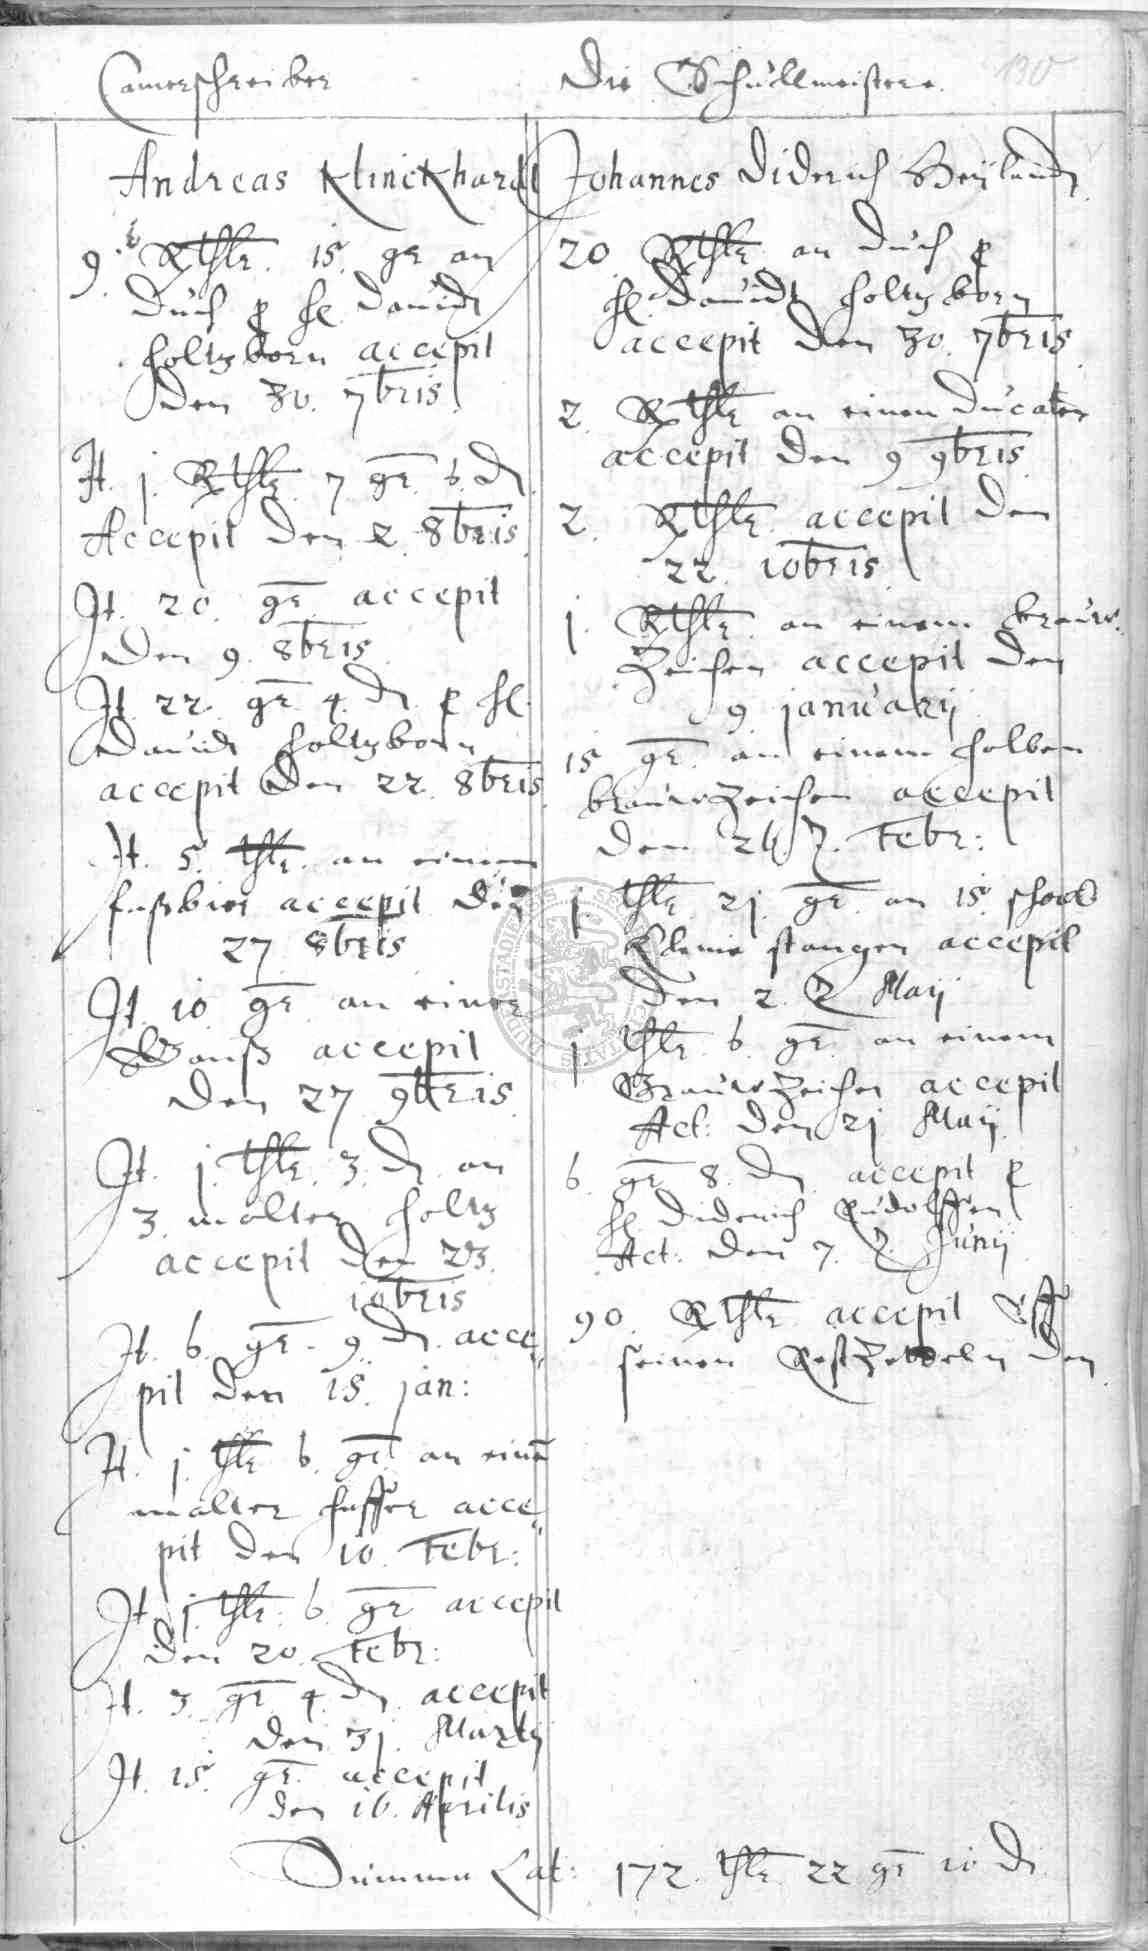 Camerschreiber
Andreas Klinckhardt
9. Rthlr. 15. gr an
duch p hl. Davidt
holtzborn accepit
den 30. 7bris
It. j. Rthlr. 7 gr. 6. d.
Accepit den 2. 8bris.
It. 20. gr. accepit
den 9. 8bris.
It. 22. gr. 4. d. p hl.
Davidt holtzborn
accepit den 22. 8bris.
It. 5. thlr. an einem
faßbier accepit den
27. 8bris
It. 10. gr. an einer
Ganß accepit
den 27 9bris.
It. j. thlr. 3. d. an
3. malter holtz
accepit den 23.
10bris
It. 6. gr. 9. d. acce
pit den 15. jan:
It. j. thlr 6. gr. an einem
malter haffer acce
pit den 10. Febr:
It. j. thlr. 6. gr accepit
den 20. Febr:
It. 3. gr 4. d. accepit
den 31. Martij
It. 15. gr. accepit
den 16. Aprilis
Die Schullmeistere.
130
Johannes Diderich Heylandt
20. Rthlr. an duch p
hl. Davidt holtzborn
accepit den 30. 7bris.
2. Rthlr. an einen Ducaten
accepit den 9 9bris.
2. Rthlr. accepit den
22. 10bris
j. Rthlr. an einem brauw
Zeichen accepit den
9 januarij
15 gr. an einem halben
brauwZeichen accepit
den Febr:
j thlr. 21. gr. an 15. schock
kleine stangen accepit
den 2. Maij
j thlr. 6. gr. an einem
BrauwZeichen accepit
Act: den 21 Maij.
6. gr 8. d. accepit p
hl. Diderich Rudolffen
Act: den 7. Junij
90. Rthlr. accepit Uff
seinen RestZettteln den
Summa Lat: 172. thlr. 22 gr 10 d